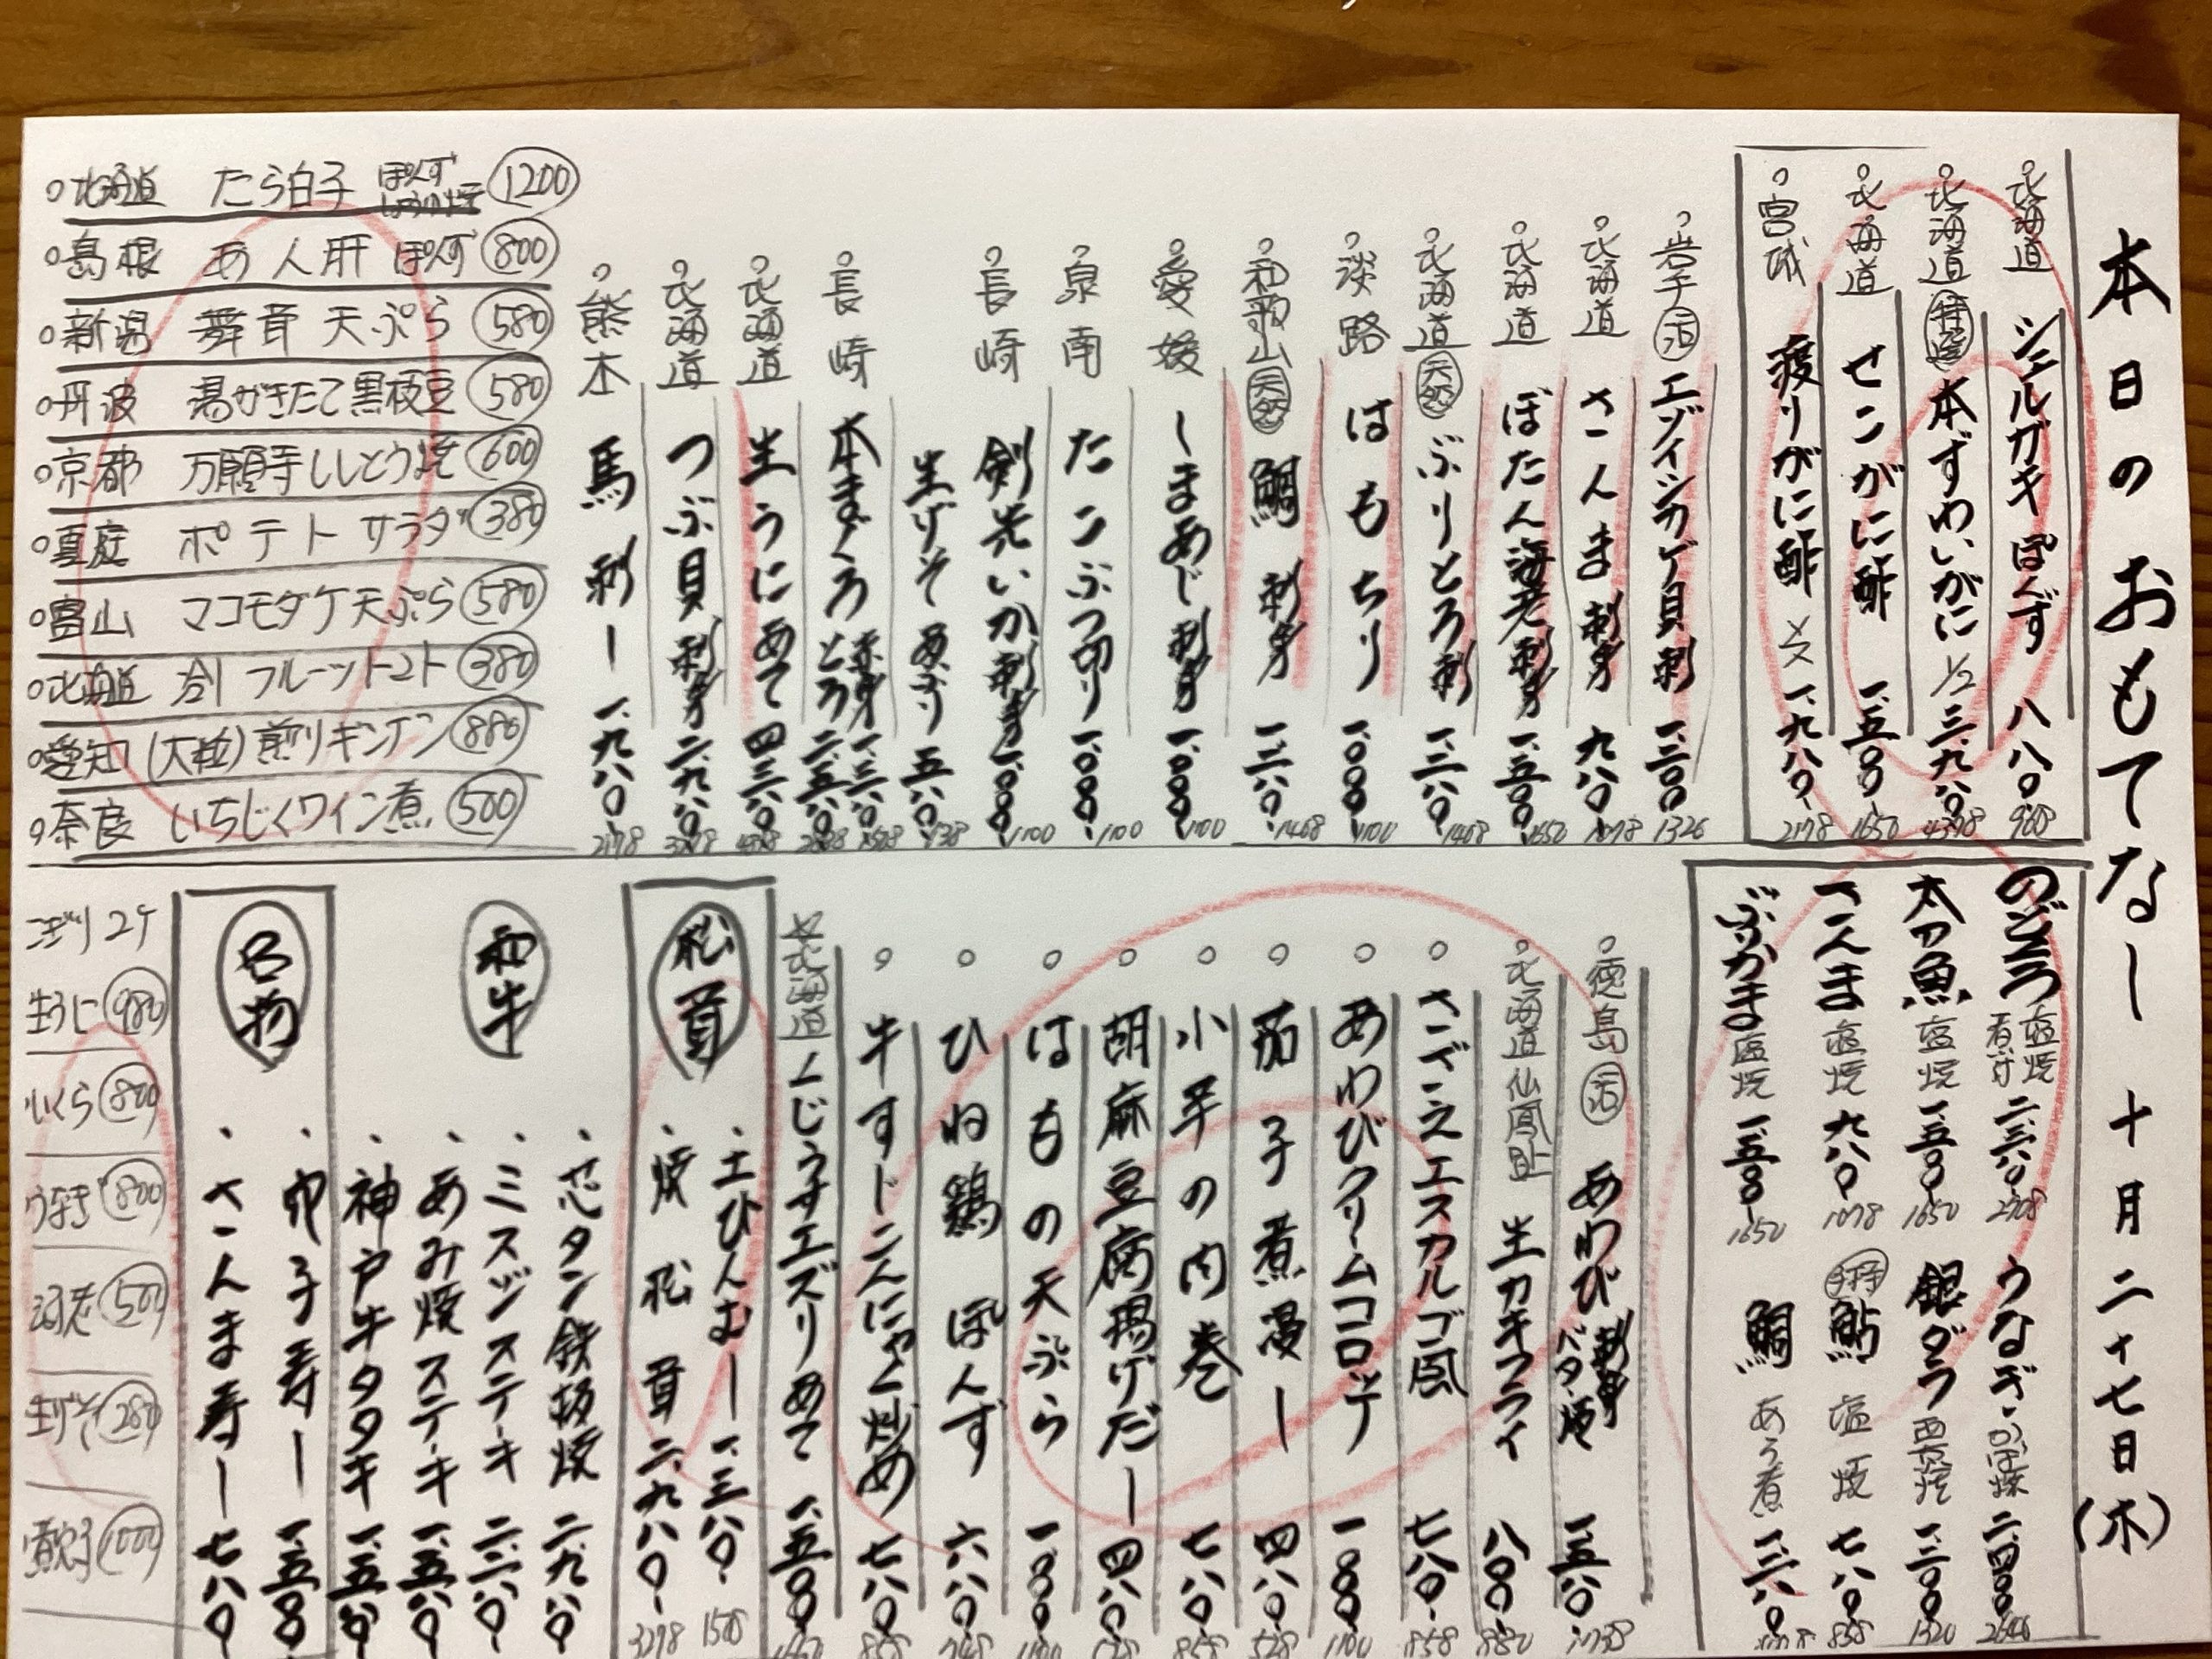 本日のおもてなし 十月二十七日(木)
北海道 シェルガキぽんず 八八〇 968
北海道 本ずわいがに 1/2 三.九八〇
北海道 せこがに酢 一.五〇〇 1650
宮城 渡りがに酢 一.九八〇 2178
岩手 活 エゾイシカゲ貝刺
北海道 さんま刺身 九八〇 1078
北海道 ぼたん海老刺身 一.五〇〇 1650
北海道 天然 ぶりとろ刺 一.二八〇 1408
淡路 はもちり 一.〇〇〇 1100
和歌山 天然 鯛刺身 一.二八〇 1408
愛媛 しまあじ刺身 一.〇〇〇 1100
泉南 たこぶつ切り 一.〇〇〇 1100
長崎 剣先いか刺身 一.〇〇〇 1100
生げそあぶり
長崎 本まぐろ 赤身 とろ
北海道 生うにあて
北海道 つぶ貝刺身 二.九八〇 3278
熊本 馬刺し 一.九八〇 2178
北海道 たら白子 ぽんず 1200
島根 あん肝 ぽんず 800
新潟 舞茸 天ぷら 580
丹波 湯がきたて黒枝豆 580
京都 万願寺ししとう焼 600
真庭 ポテトサラダ 380
富山 マコモダケ天ぷら 580
北海道 冷フルーツトマト 380
愛知(大粒)煎りギンナン 880
奈良 いちじくワイン煮 500
のどぐろ 塩焼 煮付
太刀魚 塩焼 一.五〇〇 1650
さんま 塩焼 九八〇 1078
ぶりかま 塩焼 一.五〇〇 1650
うなぎ かば焼 二.四〇〇
銀ダラ 西京焼
鮎 塩焼 七八〇 858
鯛 あら煮 一.二八〇
徳島 活 あわび 刺身 バター焼
北海道 仙鳳趾 生カキフライ 八〇〇 880
さざえエスカルゴ風 七八〇 858
あわびクリームコロッケ 一.〇〇〇 1100
茄子煮浸し 四八〇 528
小芋の肉巻 七八〇 858
胡麻豆腐揚げだし 四八〇 528
はもの天ぷら 一.〇〇〇 1100
ひね鶏ぽんず 六八〇 748
牛すじこんにゃく炒め 七八〇 858
北海道
松茸
・土びんむし 一.三八〇
・焼松茸 二.九八〇 3278
和牛
・芯タン鉄板焼 二.九八〇
・ミスジステーキ
・あみ焼ステーキ
・神戸牛タタキ
名物
・巾子寿し 一.五〇〇
・さんま寿し 七八〇
にぎり 2ケ
生うに 980
いくら 800
うなぎ 800
海老 500
生げそ 280